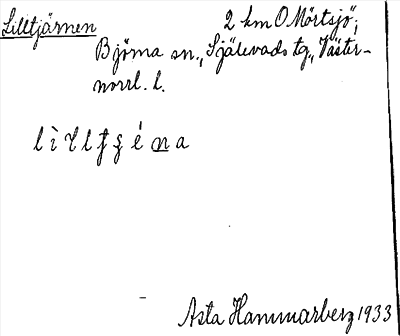 Lilltjärnen 2 km O Mörtsjö,
Björna sn., Själevads tg., Väster-
norrl. l.
Asta Hammarberg 1933